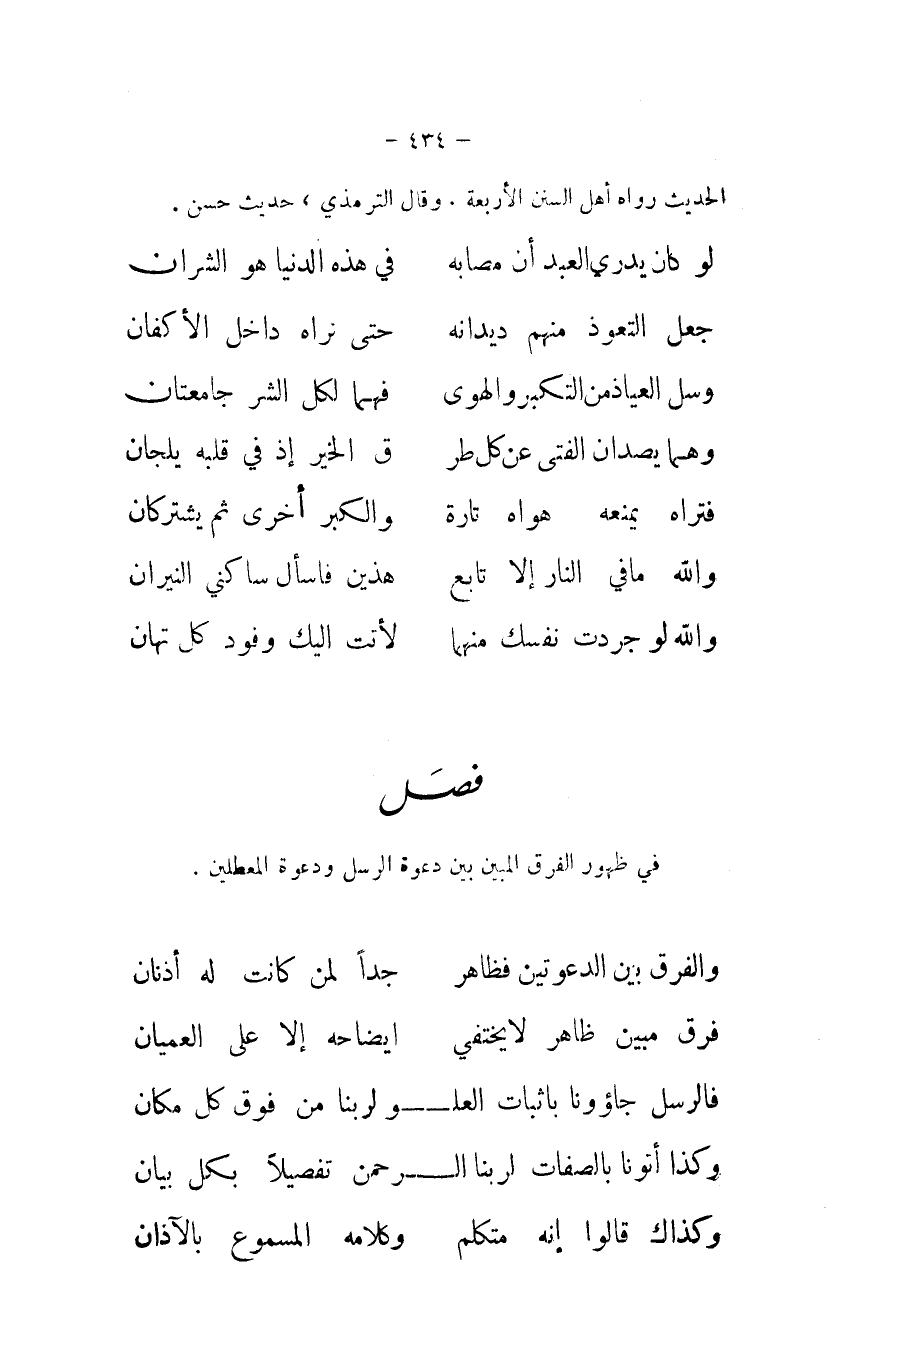 – ٤٣٤ –
الحديث رواه أهل السنن الأربعة . وقال الترمذي ، حديث حسن .
لو كان يدري العبد أن مصابه في هذه الدنيا هو الشران
جعل التعوذ منهم ديدانه حتى نراه داخل الأكفان
وسل العياذ من التكبر والهوى فهما لكل الشر جامعتان
وهما يصدان الفتى عن كل طر ق الخير إذ في قلبه يلجان
فتراه يمنعه هواه تارة والكبر أخرى ثم يشتركان
والله مافي النار إلا تابع هذين فاسأل ساكني النيران
والله لو جردت نفسك منهما لأتت اليك وفود كل تهان
فصَل
في ظهور الفرق المبين بين دعوة الرسل ودعوة المعطلين .
والفرق بين الدعوتين فظاهر جداً لمن كانت له أذنان
فرق مبين ظاهر لايختفي ايضاحه إلا على العميان
فالرسل جاؤونا باثبات العلـــو لربنا من فوق كل مكان
وكذا أتونا بالصفات لربنا الـــرحمن تفصيلاً بكل بيان
وكذاك قالوا إنه متكلم وكلامه المسموع بالآذان